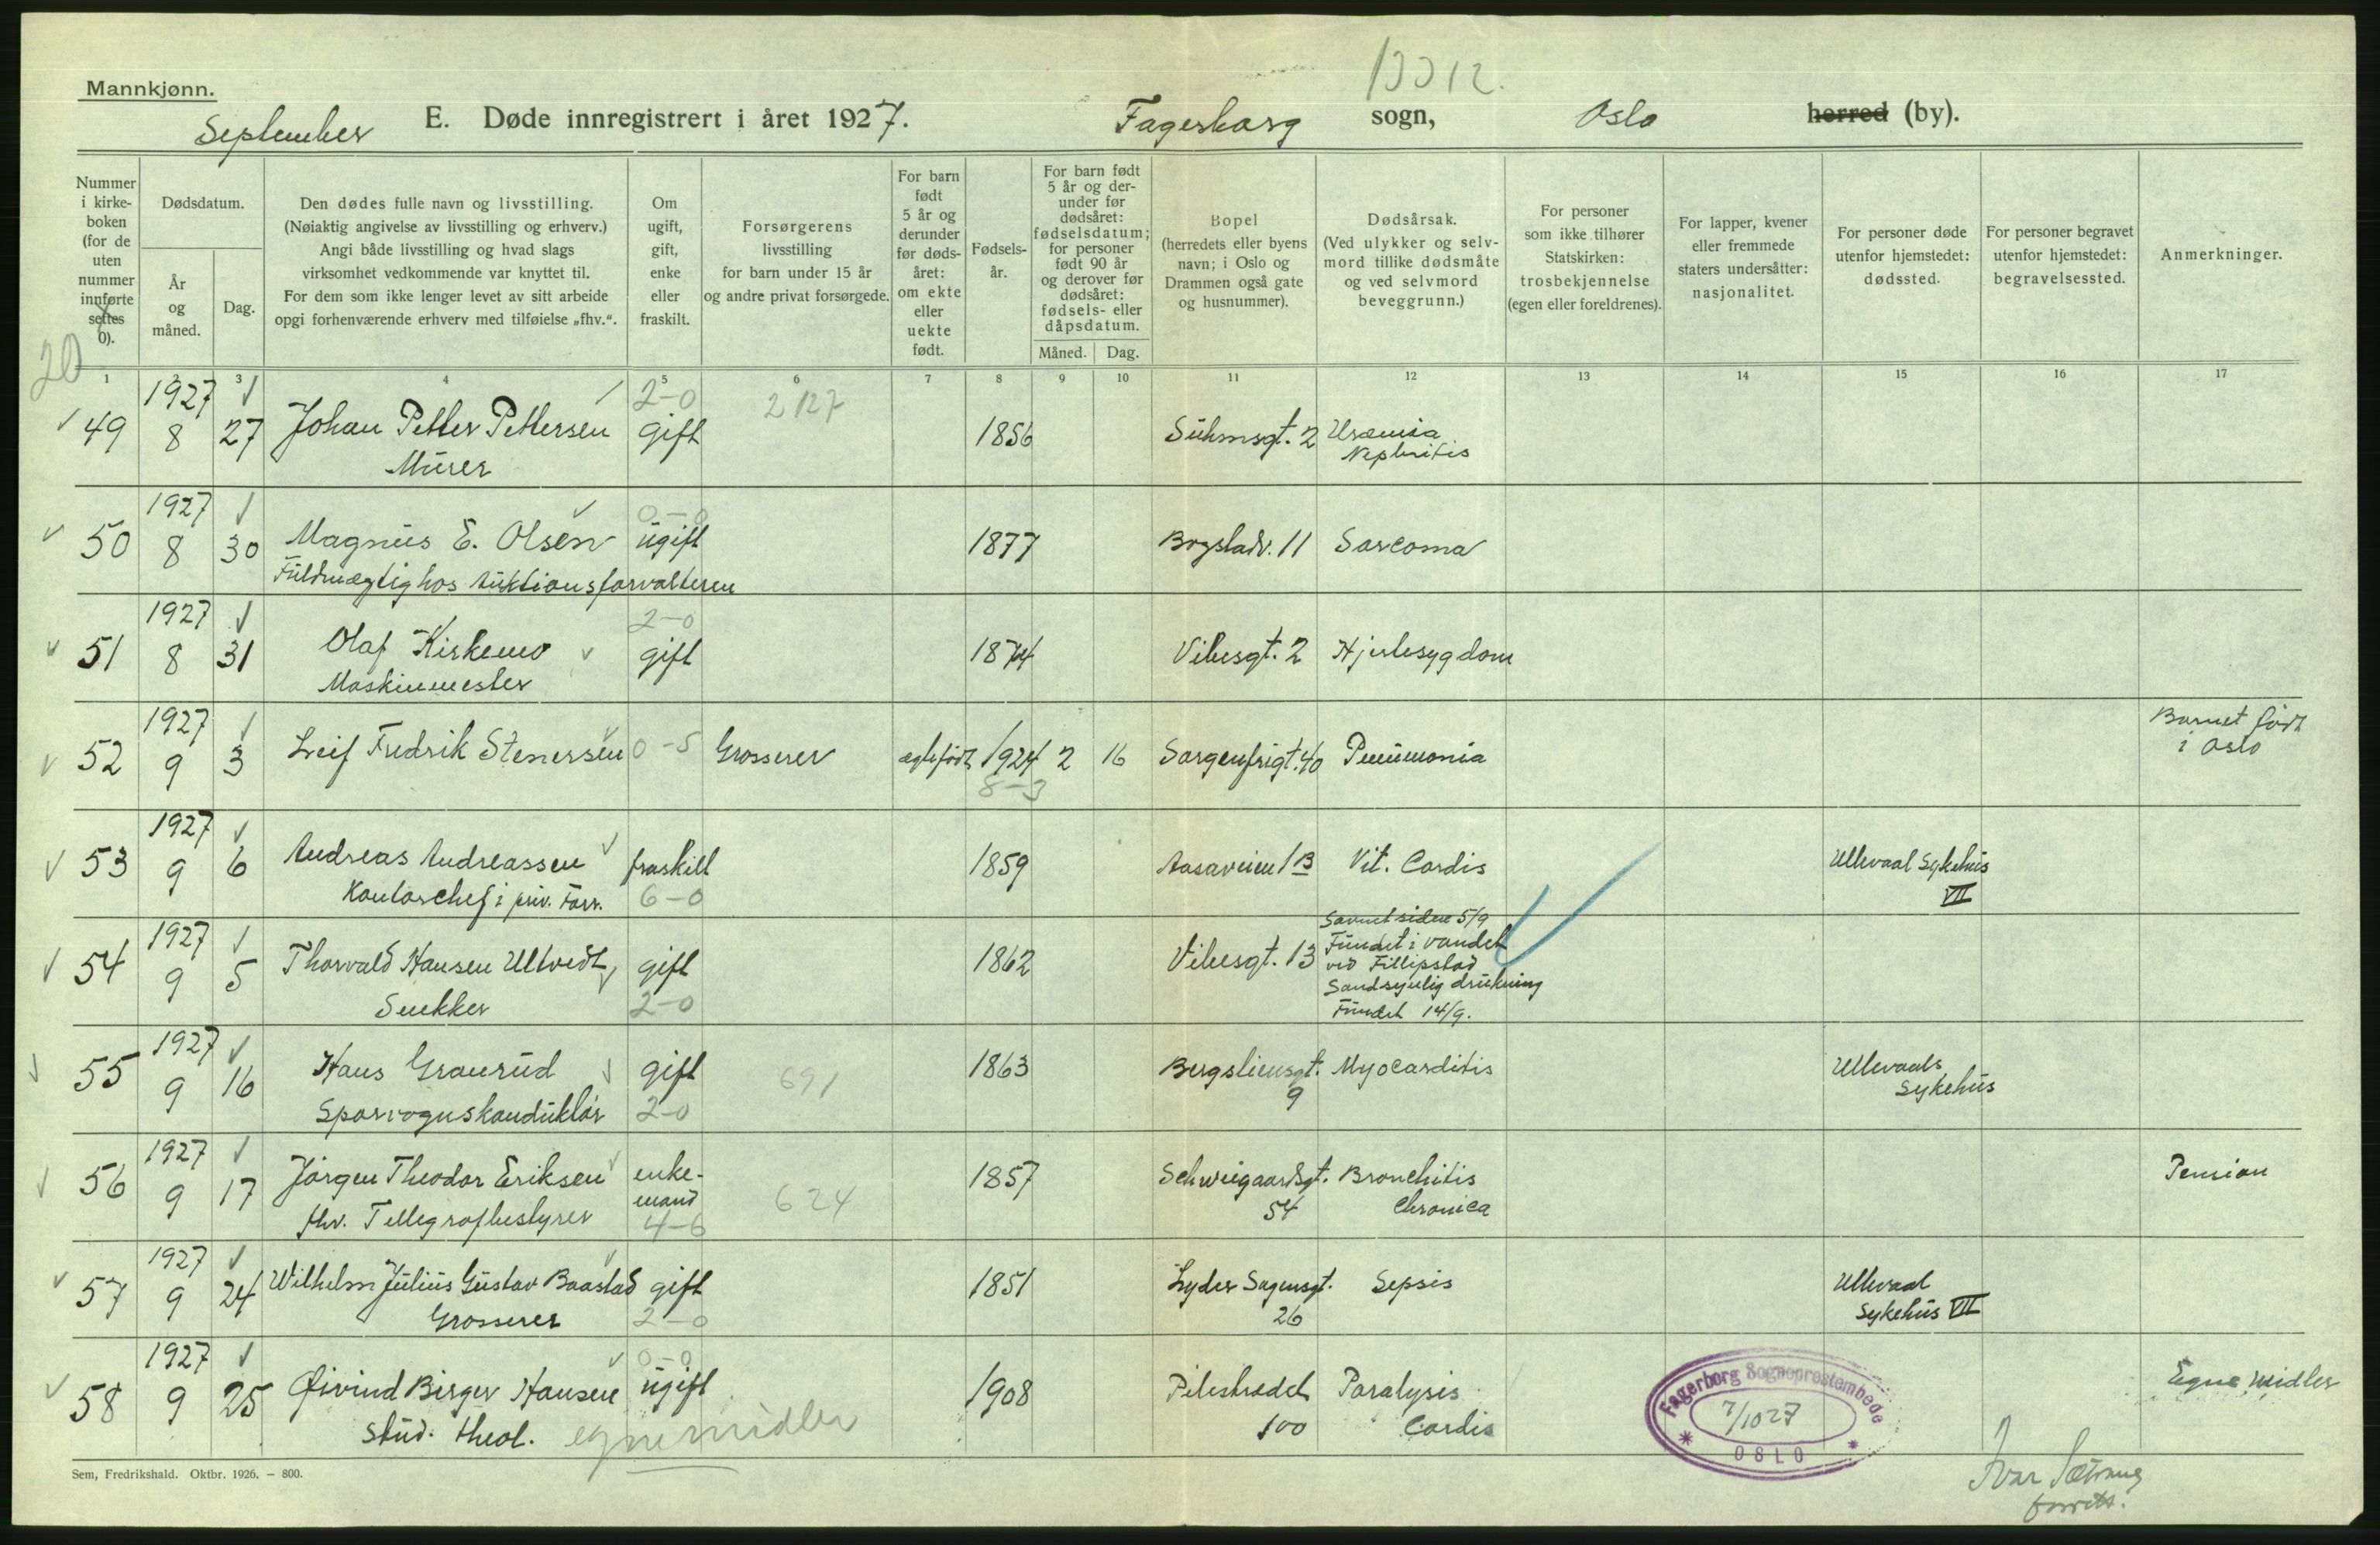 Mannkjønn.
13312.
September E. Døde innregistrert i året 1927. Fagerborg sogn, Oslo herred (by).
Nummer i kirkeboken (for de uten nummer innførte settes 0).
Dødsdatum.
År og måned.
Dag.
Den dødes fulle navn og livsstilling.
(Nøiaktig angivelse av livsstilling og erhverv.)
Angi både livsstilling og hvad slags
virksomhet vedkommende var knyttet til.
For dem som ikke lenger levet av sitt arbeide
opgi forhenværende erhverv med tilføielse „fhv.“.
Om ugift, gift, enke eller fraskilt.
Forsørgerens
livsstilling
for barn under 15 år
og andre privat forsørgede.
For barn født 5 år og derunder før dødsåret: om ekte eller uekte født.
Fødselsår.
For barn født 5 år og derunder før dødsåret: fødselsdatum; for personer født 90 år og derover før dødsåret: fødsels- eller dåpsdatum.
Måned. Dag.
Bopel
(herredets eller byens
navn; i Oslo og
Drammen også gate
og husnummer).
Dødsårsak.
(Ved ulykker og selvmord tillike dødsmåte
og ved selvmord
beveggrunn.)
For personer
som ikke tilhører
Statskirken:
trosbekjennelse
(egen eller foreldrenes).
For lapper, kvener
eller fremmede
staters undersåtter:
nasjonalitet.
For personer døde
utenfor hjemstedet:
dødssted.
For personer begravet
utenfor hjemstedet:
begravelsessted.
Anmerkninger.
20
1 2 3 4 5 6 7 8 9 10 11 12 13 14 15 16 17
1927 2-0 2127
49 8 27 Johan Petter Pettersen gift 1856 Suhmsgt. 2 Uræmia
Murer Nephritis
1927 0-0
50 8 30 Magnus E. Olsen ugift 1877 Bogstadv. 11 Sarcoma
Fuldmægtig hos Auktionsforvalteren
1927 2-0
51 8 31 Olaf Kirkemo gift 1874 Vibesgt. 2 Hjertesygdom
Maskinmester
1927 Barnet født
52 9 3 Leif Fredrik Stenersen 0-5 Grosserer egtefødt 1924 2 16 Sorgenfrigt. 40 Pneumonia i Oslo
8-3
1927
53 9 6 Andreas Andreassen fraskilt 1859 Aasaveien 1B Vit. Cordis Ullevaal Sykehus
Kontorchef i priv. Forr. 6-0 VII
1927 Savnet siden 5/9
54 9 5 Thorvald Hansen Ultvedt gift 1862 Vibesgt. 13 Fundet i vandet
ved Fillipstad
Snekker 2-0 Sandsynlig drukning
Fundet 14/9.
1927
55 9 16 Hans Granrud gift 691 1863 Bergsliensgt. 9 Myocarditis Ullevaals
Sporvognskonduktør 2-0 Sykehus
1927
56 9 17 Jørgen Theodor Eriksen enkemand 624 1857 Schweigaardsgt. 54 Bronchitis Pension
fhv. Tellegrafbestyrer 4-6 Chronica
1927
57 9 24 Wilhelm Julius Gustav Baastad gift 1851 Lyder Sagensgt. 26 Sepsis Ullevaal
Grosserer 2-0 Sykehus VII
1927 0-0
58 9 25 Øivind Birger Hansen ugift 1908 Pilestrædet 100 Paralysis Egne midler
stud. theol. egne midler Cordis
Fagerborg Sogneprestembede
7/10 27
OSLO
Sem, Fredrikshald. Oktbr. 1926. – 800.
Ivar Sætrang